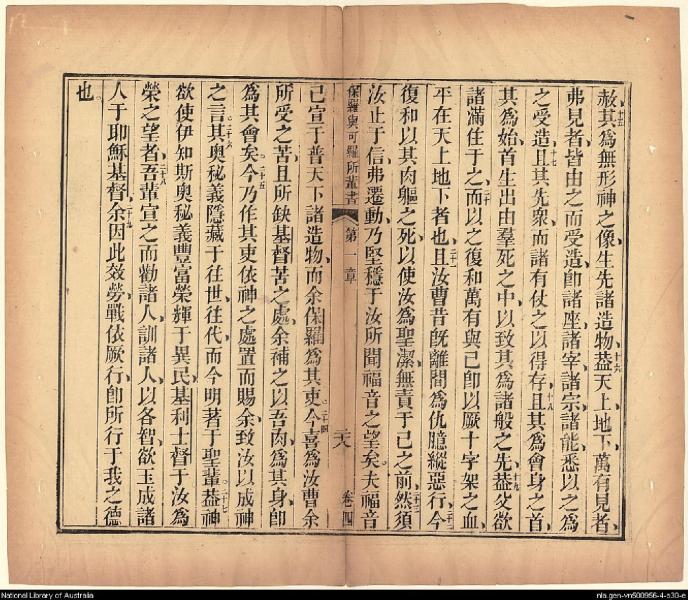 赦其為無形神之像生先諸造物十六葢天上地下萬有見者
弗見者皆由之而受造卽諸座諸宰諸宗諸能悉以之為
之受造十七且其先衆而諸有仗之以得存十八且其為會身之首
其為始首生出由羣死之中以致其為諸般之先十九葢父欲
諸滿住于之二十而以之復和萬有與己卽以厥十字架之血
平在天上地下者也二十一且汝曹昔旣離間為仇臆縱惡行今
復和以其肉軀之死以使汝為聖潔無責于己之前二十三然須
汝止于信弗遷動乃堅穩于汝所聞福音之望矣夫福音
保羅與可羅所輩書 第一章 二六 卷四
己宣于普天下諸造物而余保羅為其吏二十四今喜為汝曹余
所受之苦且所缺基督苦之處余補之以吾肉為其身卽
為其會矣二十五今乃作其吏依神之處置而賜余致汝以成神
之言二十六其奧秘義隱藏于往世往代而今明著于聖輩二十七葢神
欲使伊知斯奧秘義豐富榮輝于異民基利士督于汝為
榮之望者二十八吾輩宣之而勸諸人訓諸人以各智欲玉成諸
人于耶穌基督二十九余因此效勞戰依厥行卽所行于我之德
也
National Library of Australia
nla.gen-vn500956-4-s30-e